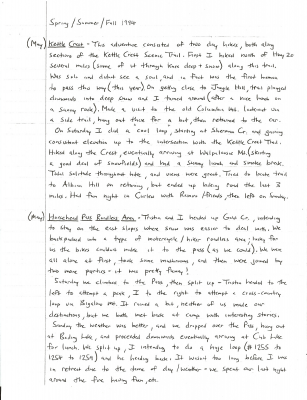 Spring / Summer / Fall 1984
(May) Kettle Crest - This adventure consisted of two day hikes, both along
sections of the Kettle Crest Scenic Trail. First I hiked north of Hwy 20
several miles (some of it through knee deep + snow) along this trail.
Was solo and didn't see a soul, and in fact was the first human
to pass this way (this year). On getting close to Jungle Hill, trail plunged
downwards into deep snow and I turned around (after a lunch break on
a sunny rock). Made a visit to the old Columbia Mtn. Lookout via
a side trail, hung out there for a bit, then returned to the car.
On Saturday I did a cool loop, starting at Sherman Cr. and gaining
consistent elevation up to the intersection with the Kettle Crest Trail.
Hiked along the Crest, eventually arriving at Wapaloosie Mt. (skirting
a good deal of snowfields) and had a sunny lunch and smoke break.
Total solitude throughout hike, and views were great. Tried to locate trail
to Albian Hill on returning, but ended up hiking road the last 3
miles. Had fun night in Curlew with Ramon / friends, then left on Sunday.
(May) Horsehead Pass Roadless Area - Trisha and I headed up Gold Cr., intending
to stay on the east slopes where snow was easier to deal with. We
backpacked into a type of motorcycle / hiker roadless area; lucky for
us the bikes couldn't make it to the pass (as we could). We were
all alone at first, took some mushrooms, and then were joined by
two more parties - it was pretty funny!
Saturday we climbed to the Pass, then split up - Trisha headed to the
left to attempt a peak, I to the right to attempt a cross-country
loop via Bigelow Mt. It rained a bit, neither of us made our
destinations, but we both met back at camp with interesting stories.
Sunday the weather was better, and we dropped over the Pass, hung out
at Boiling Lake, and proceeded downwards eventually arriving at Cub Lake
for lunch. We split up, I intending to do a huge loop (# 1255 to
1254 to 1259) and he heading back. It wasn't too long before I was
in retreat due to the time of day / weather - we spent our last night
around the fire having fun, etc.